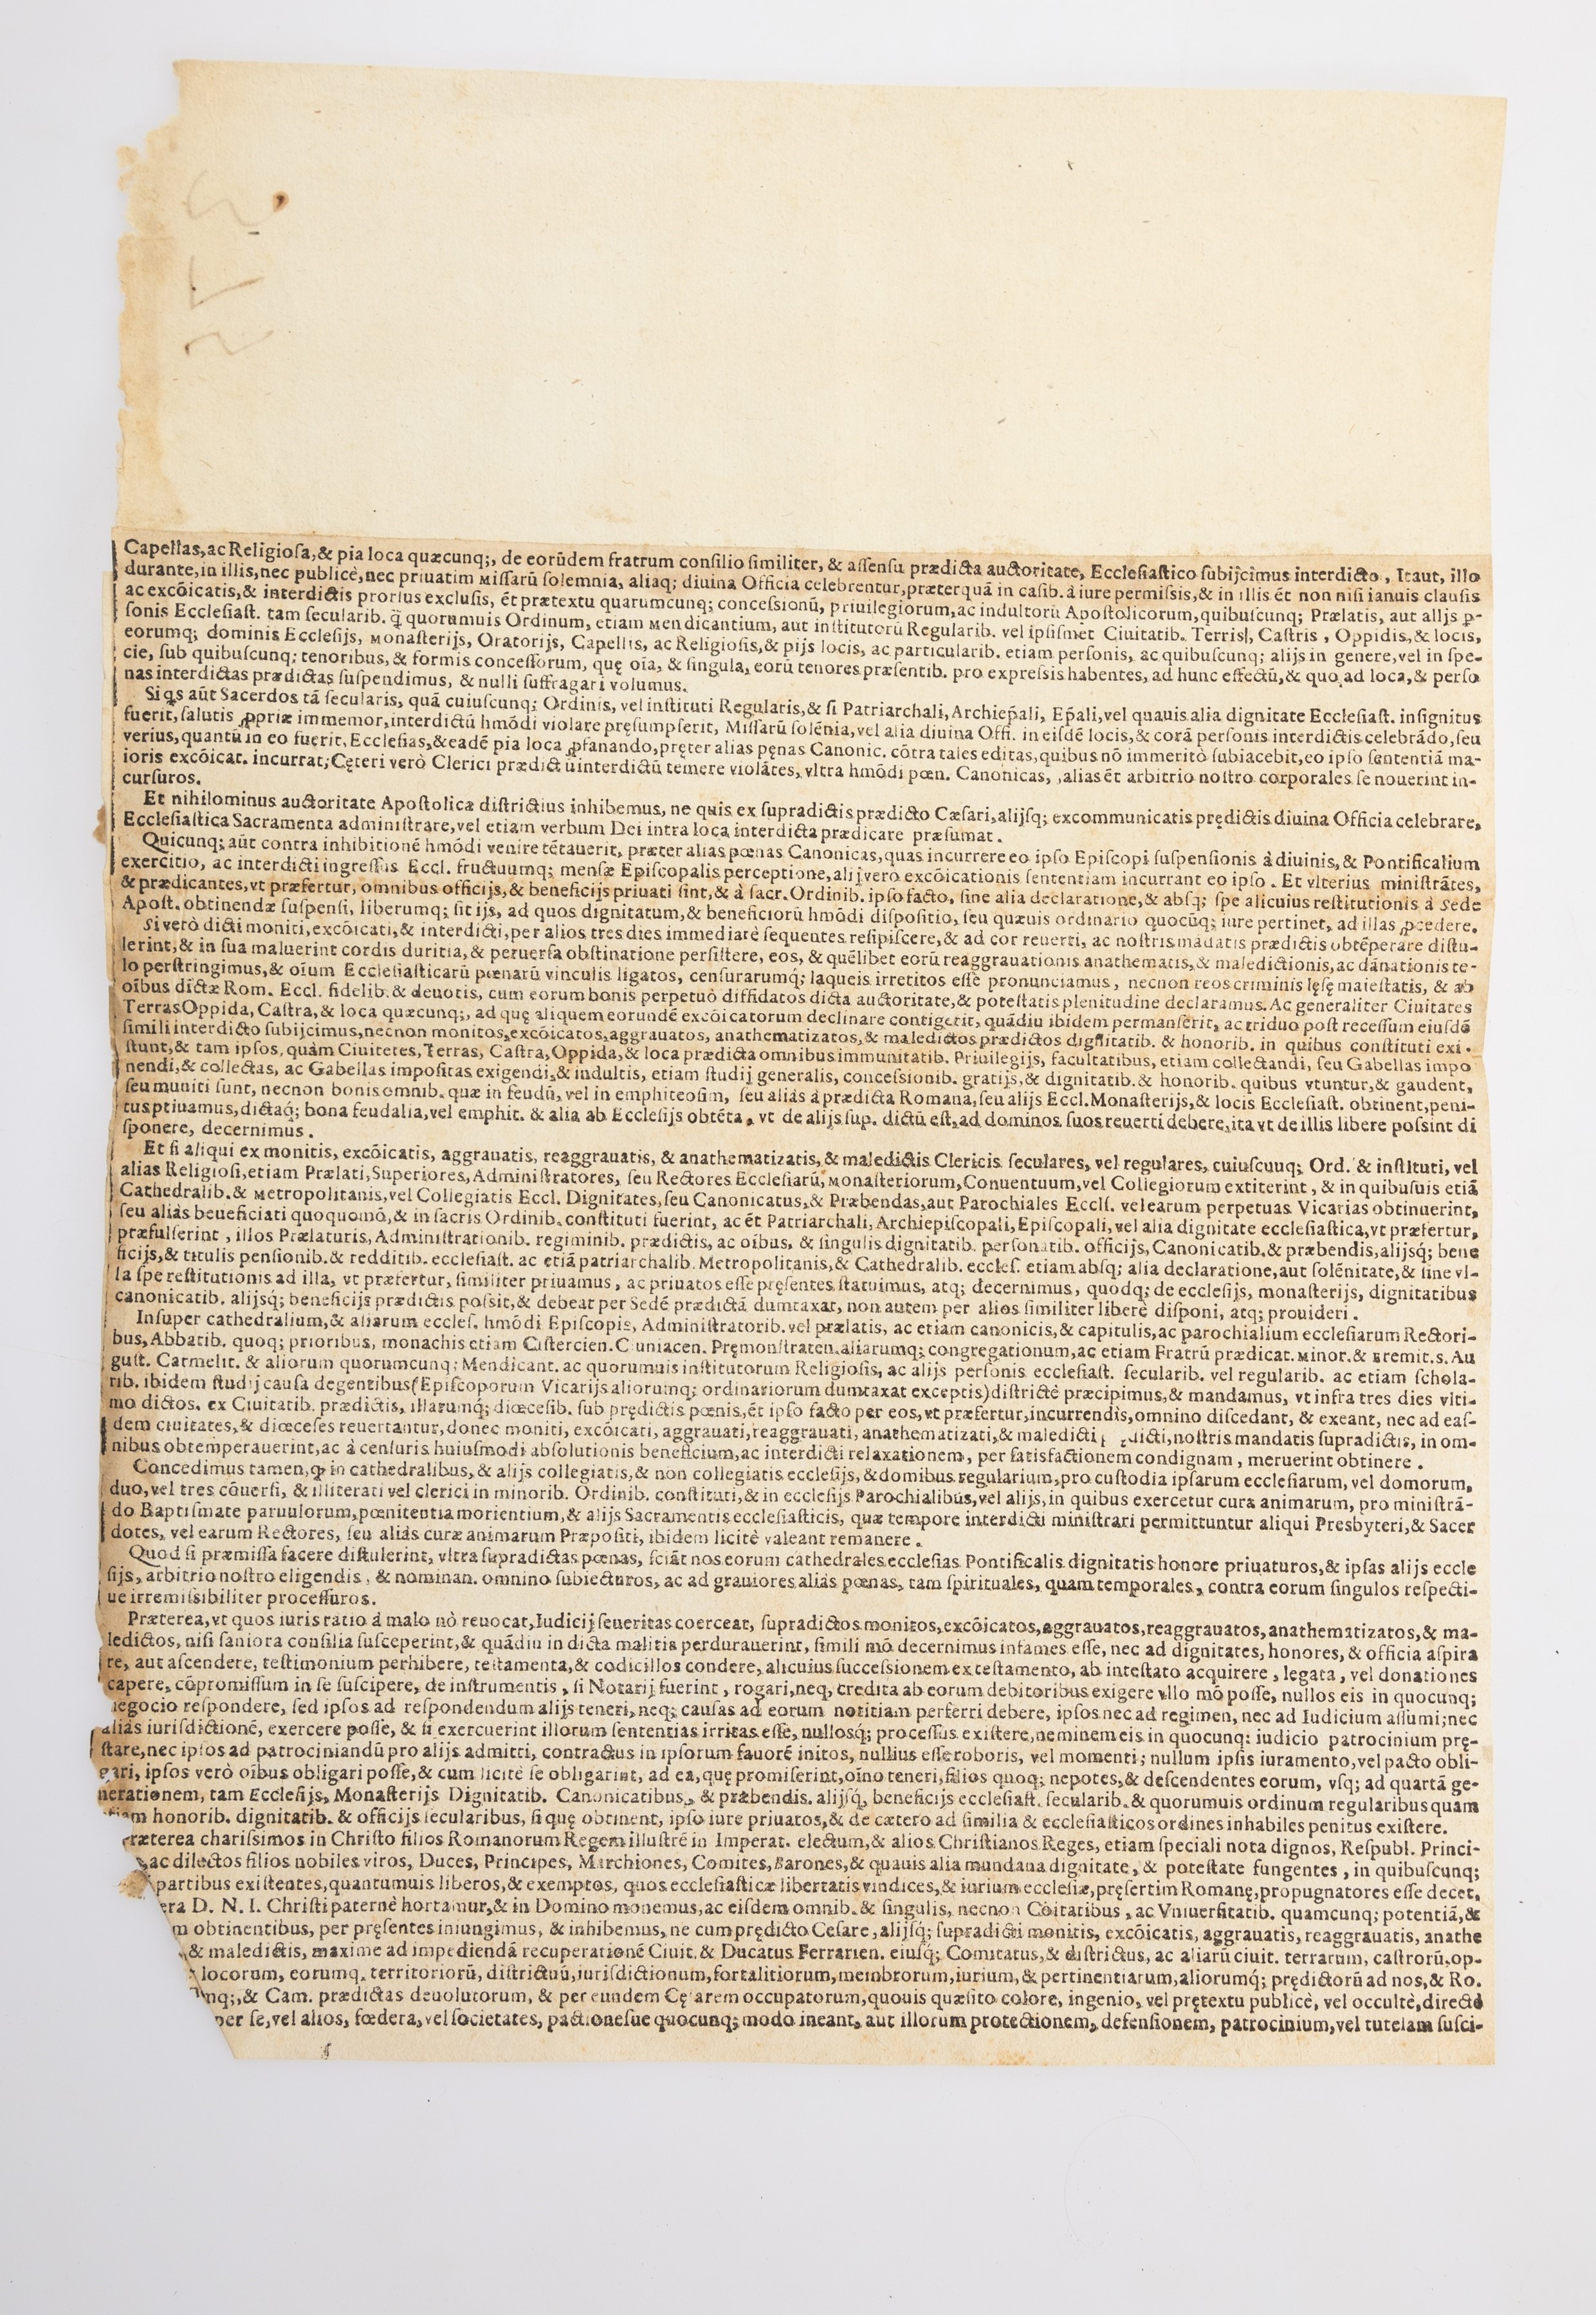 Capellas, ac Religiosa, & pia loca quæcunq;, de eorũdem fratrum consilio similiter, & assensu prædicta auctoritate, Ecclesiastico subijcimus interdicto, Itaut, illo
durante, in illis, nec publicè, nec priuatim Missarũ solemnia, aliaq; diuina Officia celebrentur, præterquã in casib. à iure permissis, & in illis ét non nisi ianuis clausis
ac excõicatis, & interdictis prorsus exclusis, ét prætextu quarumcunq; concessionũ, priuilegiorum, ac indultorũ Apostolicorum, quibuscunq; Prælatis, aut alijs ꝑ-
sonis Ecclesiast. tam secularib. q̃ quorumuis Ordinum, etiam Mendicantium, aut institutorũ Regularib. vel ipsismet Ciuitatib. Terris, Castris, Oppidis, & locis,
eorumq; dominis Ecclesijs, Monasterijs, Oratorijs, Capellis, ac Religiosis, & pijs locis, ac particularib. etiam personis, ac quibuscunq; alijs in genere, vel in spe-
cie, sub quibuscunq; tenoribus, & formis concessorum, quę oĩa, & singula, eorũ tenores præsentib. pro expressis habentes, ad hunc effectũ, & quo ad loca, & perso
nas interdictas prædictas suspendimus, & nulli suffragari volumus.
Si q̃s aũt Sacerdos tã secularis, quã cuiuscunq; Ordinis, vel instituti Regularis, & si Patriarchali, Archiep̃ali, Ep̃ali, vel quauis alia dignitate Ecclesiast. insignitus
fuerit, salutis ꝓpriæ immemor, interdictũ hmõdi violare pręsumpserit, Missarũ solẽnia, vel alia diuina Offi. in eisdẽ locis, & corã personis interdictis celebrãdo, seu
verius, quantũ in eo fuerit, Ecclesias, & eadẽ pia loca ꝓfanando, pręter alias pęnas Canonic. cõtra tales editas, quibus nõ immeritò subiacebit, eo ipso sententiã ma-
ioris excõicat. incurrat; Cęteri verò Clerici prædictũ interdictũ temere violãtes, vltra hmõdi pœn. Canonicas, alias ét arbitrio nostro corporales se nouerint in-
cursuros.
Et nihilominus auctoritate Apostolica districtius inhibemus, ne quis ex supradictis prædicto Cæsari, alijsq; excommunicatis prędictis diuina Officia celebrare,
Ecclesiastica Sacramenta administrare, vel etiam verbum Dei intra loca interdicta prædicare præsumat.
Quicunq; aũt contra inhibitionẽ hmõdi venire tẽtauerit, præter alias pœnas Canonicas, quas incurrere eo ipso Episcopi suspensionis à diuinis, & Pontificalium
exercitio, ac interdicti ingressus Eccl. fructuumq; mensæ Episcopalis perceptione, alij verò excõicationis sententiam incurrant eo ipso. Et vlterius ministrãtes,
& prædicantes, vt præfertur, omnibus officijs, & beneficijs priuati sint, & à sacr. Ordinib. ipso facto, sine alia declaratione, & absq; spe alicuius restitutionis à Sede
Apost. obtinendæ suspensi, liberumq; sit ijs, ad quos dignitatum, & beneficiorũ hmõdi dispositio, seu quæuis ordinario quocũq; iure pertinet, ad illas ꝓcedere.
Si verò dicti moniti, excõicati, & interdicti, per alios tres dies immediatè sequentes resipiscere, & ad cor reuerti, ac nostris mãdatis prædictis obtẽperare distu-
lerint, & in sua maluerint cordis duritia, & peruersa obstinatione persistere, eos, & quẽlibet eorũ reaggrauationis anathematis, & maledictionis, ac dãnationis te-
lo perstringimus, & oĩum Ecclesiasticarũ pœnarũ vinculis ligatos, censurarumq́; laqueis irretitos esse pronunciamus, necnon reos criminis lęsę maiestatis, & ab
oĩbus dictæ Rom. Eccl. fidelib. & deuotis, cum eorum bonis perpetuò diffidatos dicta auctoritate, & potestatis plenitudine declaramus. Ac generaliter Ciuitates
Terras Oppida, Castra, & loca quæcunq;, ad quę aliquem eorundẽ excõicatorum declinare contigerit, quãdiu ibidem permanserit, ac triduo post recessum eiusdẽ
simili interdicto subijcimus, necnon monitos, excõicatos, aggrauatos, anathematizatos, & maledictos prædictos dignitatib. & honorib. in quibus constituti exi-
stunt, & tam ipsos, quàm Ciuitetes, Terras, Castra, Oppida, & loca prædicta omnibus immunitatib. Priuilegijs, facultatibus, etiam collectandi, seu Gabellas impo
nendi, & collectas, ac Gabellas impositas exigendi, & indultis, etiam studij generalis, concessionib. gratijs, & dignitatib. & honorib. quibus vtuntur, & gaudent,
seu muniti sunt, necnon bonis omnib. quæ in feudũ, vel in emphiteosim, seu aliàs à prædicta Romana, seu alijs Eccl. Monasterijs, & locis Ecclesiast. obtinent, peni-
tus priuamus, dictaq́; bona feudalia, vel emphit. & alia ab Ecclesijs obtẽta, vt de alijs sup. dictũ est, ad dominos suos reuerti debere, ita vt de illis libere possint di
sponere, decernimus.
Et si aliqui ex monitis, excõicatis, aggrauatis, reaggrauatis, & anathematizatis, & maledictis Clericis seculares, vel regulares, cuiuscuuq; Ord. & instituti, vel
alias Religiosi, etiam Prælati, Superiores, Administratores, seu Rectores Ecclesiarũ, Monasteriorum, Conuentuum, vel Collegiorum extiterint, & in quibusuis etiã
Cathedralib. & Metropolitanis, vel Collegiatis Eccl. Dignitates, seu Canonicatus, & Præbendas, aut Parochiales Eccls. vel earum perpetuas Vicarias obtinuerint,
seu aliàs beueficiati quoquomõ, & in sacris Ordinib. constituti fuerint, ac ét Patriarchali, Archiepiscopali, Episcopali, vel alia dignitate ecclesiastica, vt præfertur,
præfulserint, illos Prælaturis, Administrationib. regiminib. prædictis, ac oĩbus, & singulis dignitatib. personatib. officijs, Canonicatib. & præbendis, alijsq́; bene
ficijs, & titulis pensionib. & redditib. ecclesiast. ac etiã patriarchalib. Metropolitanis, & Cathedralib. eccles. etiam absq; alia declaratione, aut solẽnitate, & sine vl-
la spe restitutionis ad illa, vt præfertur, similiter priuamus, ac priuatos esse pręsentes statuimus, atq; decernimus, quodq; de ecclesijs, monasterijs, dignitatibus
canonicatib. alijsq́; beneficijs prædictis possit, & debeat per Sedẽ prædictã dumtaxat, non autem per alios similiter liberè disponi, atq; prouideri.
Insuper cathedralium, & aliarum eccles. hmõdi Episcopis, Administratorib. vel prælatis, ac etiam canonicis, & capitulis, ac parochialium ecclesiarum Rectori-
bus, Abbatib. quoq; prioribus, monachis etiam Cistercien. Cluniacen. Pręmonstraten. aliarumq; congregationum, ac etiam Fratrũ prædicat. Minor. & Eremit. s. Au
gust. Carmelit. & aliorum quorumcunq; Mendicant. ac quorumuis institutorum Religiosis, ac alijs personis ecclesiast. secularib. vel regularib. ac etiam schola-
rib. ibidem studij causa degentibus (Episcoporum Vicarijs aliorumq; ordinariorum dumtaxat exceptis) districtè præcipimus, & mandamus, vt infra tres dies vlti-
mo dictos. ex Ciuitatib. prædictis, illarumq́; diœcesib. sub prędictis pœnis, ét ipso facto per eos, vt præfertur, incurrendis, omnino discedant, & exeant, nec ad eas-
dem ciuitates, & diœceses reuertantur, donec moniti, excõicati, aggrauati, reaggrauati, anathematizati, & maledicti dicti, nostris mandatis supradictis, in om-
nibus obtemperauerint, ac à censuris huiusmodi absolutionis beneficium, ac interdicti relaxationem, per satisfactionem condignam, meruerint obtinere.
Concedimus tamen, ꝙ in cathedralibus, & alijs collegiatis, & non collegiatis ecclesijs, & domibus regularium, pro custodia ipsarum ecclesiarum, vel domorum,
duo, vel tres cõuersi, & illiterati vel clerici in minorib. Ordinib. constituti, & in ecclesijs Parochialibus, vel alijs, in quibus exercetur cura animarum, pro ministrã-
do Baptismate paruulorum, pœnitentia morientium, & alijs Sacramentis ecclesiasticis, quæ tempore interdicti ministrari permittuntur aliqui Presbyteri, & Sacer
dotes, vel earum Rectores, seu aliàs curæ animarum Præpositi, ibidem licitè valeant remanere.
Quod si præmissa facere distulerint, vltra supradictas pœnas, sciãt nos eorum cathedrales ecclesias Pontificalis dignitatis honore priuaturos, & ipsas alijs eccle
sijs, arbitrio nostro eligendis, & nominan. omnino subiecturos, ac ad grauiores aliàs pœnas, tam spirituales, quam temporales, contra eorum singulos respecti-
ue irremissibiliter processuros.
Præterea, vt quos iuris ratio à malo nò reuocat, Iudicij seueritas coerceat, supradictos monitos, excõicatos, aggrauatos, reaggrauatos, anathematizatos, & ma-
ledictos, nisi saniora consilia susceperint, & quãdiu in dicta malitia perdurauerint, simili mõ decernimus infames esse, nec ad dignitates, honores, & officia aspira
re, aut ascendere, testimonium perhibere, testamenta, & codicillos condere, alicuius successionem ex testamento, ab intestato acquirere, legata, vel donationes
capere, cõpromissum in se suscipere, de instrumentis, si Notarij fuerint, rogari, neq; credita ab eorum debitoribus exigere vllo mõ posse, nullos eis in quocunq;
negocio respondere, sed ipsos ad respondendum alijs teneri, neq; causas ad eorum notitiam perferri debere, ipsos nec ad regimen, nec ad Iudicium assumi; nec
aliàs iurisdictionẽ, exercere posse, & si exercuerint illorum sententias irritas esse, nullosq́; processus existere, neminem eis in quocunq; iudicio patrocinium prę-
stare, nec ipsos ad patrociniandũ pro alijs admitti, contractus in ipsorum fauorẽ initos, nullius esse roboris, vel momenti; nullum ipsis iuramento, vel pacto obli-
gari, ipsos verò oĩbus obligari posse, & cum licitè se obligarint, ad ea, quę promiserint, oĩno teneri, filios quoq; nepotes, & descendentes eorum, vsq; ad quartã ge-
nerationem, tam Ecclesijs, Monasterijs Dignitatib. Canonicatibus, & præbendis. alijsq́, beneficijs ecclesiast. secularib. & quorumuis ordinum regularibus quam
etiam honorib. dignitatib. & officijs secularibus, si quę obtinent, ipso iure priuatos, & de cætero ad similia & ecclesiasticos ordines inhabiles penitus existere.
Præterea charissimos in Christo filios Romanorum Regem illustrẽ in Imperat. electum, & alios Christianos Reges, etiam speciali nota dignos, Respubl. Princi-
ac dilectos filios nobiles viros, Duces, Principes, Marchiones, Comites, Barones, & quauis alia mundana dignitate, & potestate fungentes, in quibuscunq;
partibus existentes, quantumuis liberos, & exemptos, quos ecclesiasticæ libertatis vindices, & iurium ecclesiæ, pręsertim Romanę, propugnatores esse decet,
era D. N. I. Christi paternè hortamur, & in Domino monemus, ac eisdem omnib. & singulis, necnon Cõitatibus, ac Vniuersitatib. quamcunq; potentiã, &
m obtinentibus, per pręsentes iniungimus, & inhibemus, ne cum prędicto Cesare, alijsq́; supradicti monitis, excõicatis, aggrauatis, reaggrauatis, anathe
& maledictis, maxime ad impediendã recuperationẽ Ciuit. & Ducatus Ferrarien. eiusq́; Comitatus, & districtus, ac aliarũ ciuit. terrarum, castrorũ, op-
locorum, eorumq. territoriorũ, districtuũ, iurisdictionum, fortalitiorum, membrorum, iurium, & pertinentiarum, aliorumq́; prędictorũ ad nos, & Ro.
nq;, & Cam. prædictas deuolutorum, & per eundem Cęsarem occupatorum, quouis quæsito colore, ingenio, vel prętextu publicè, vel occultè, directè
per se, vel alios, fœdera, vel societates, pactionesue quocunq; modo ineant, aut illorum protectionem, defensionem, patrocinium, vel tutelam susci-